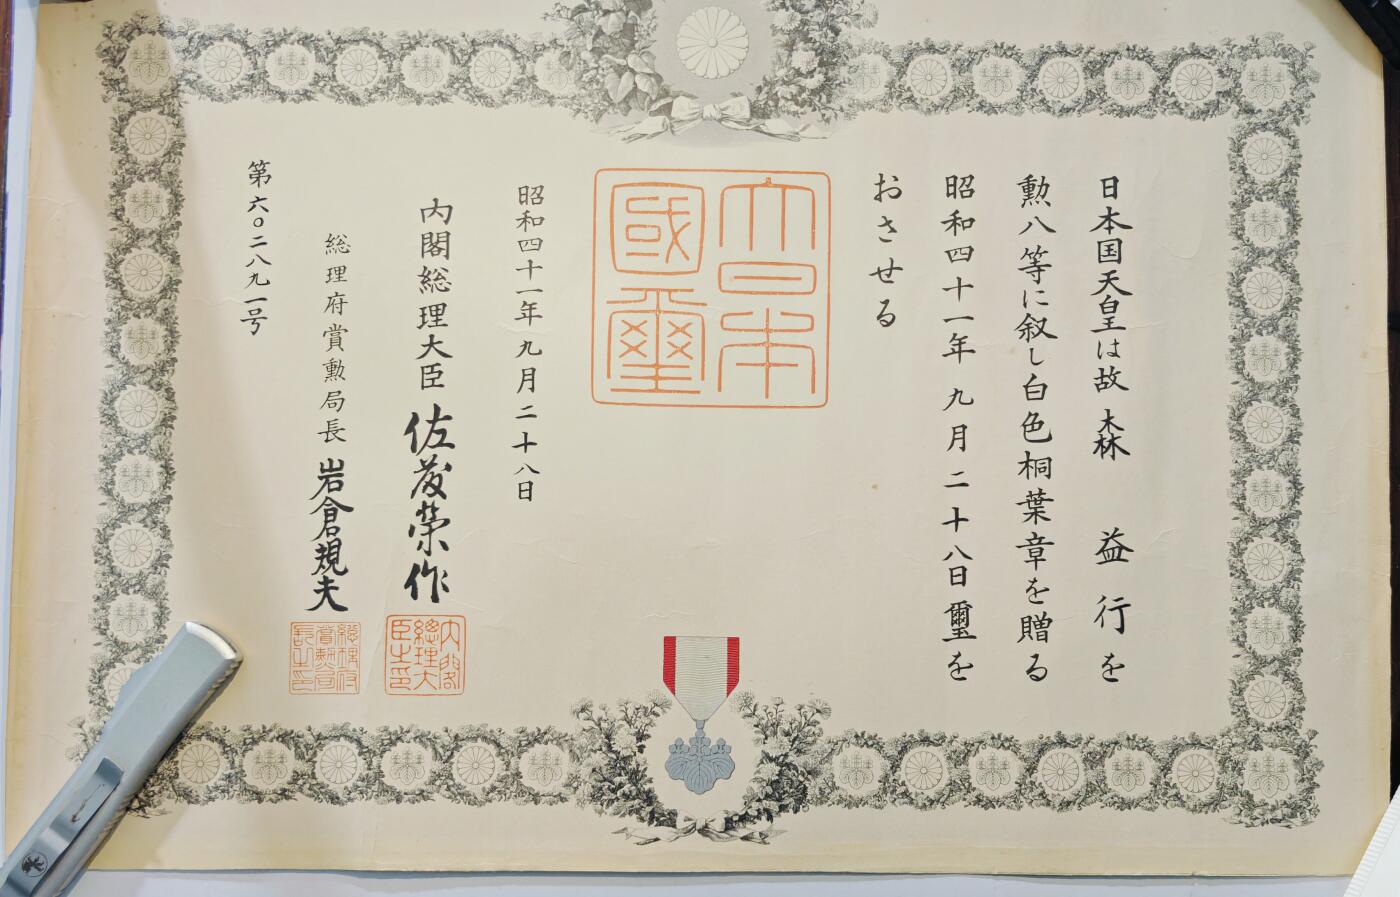 日本国天皇は故森益行を
勲八等に叙し白色桐葉章を贈る
昭和四十一年九月二十八日璽を
おさせる
大日本
國璽
昭和四十一年九月二十八日
内閣総理大臣佐藤榮作
内閣
總理大
臣之印
総理府賞勲局長岩倉規夫
総理府
賞勲局
長之印
第六〇二八九一号